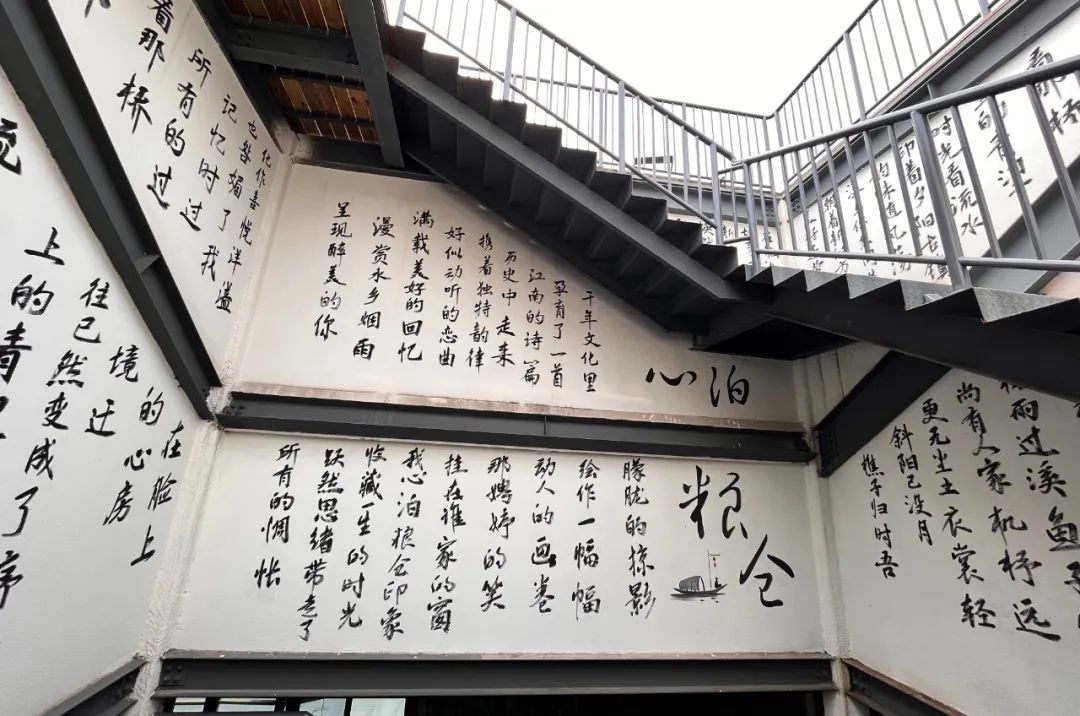 看那桥
所有的过
化作喜悦洋溢
上的青
往已然变成了序
境迁
的心房
在脸上
心泊
千年文化里
孕育了一首
江南的诗篇
历史中走来
携着独特韵律
好似动听的恋曲
满载美好的回忆
漫赏水乡烟雨
呈现醉美的你
粮仓
朦胧的掠影
绘作一幅幅
动人的画卷
那娉婷的笑
挂在谁家的窗
我心泊粮仓印象
收藏一生的时光
跃然思绪带走了
所有的惆怅
那桥
时光看流水
印着夕阳
雨过溪鱼
尚有人家机杼远
更无尘土衣裳轻
斜阳已没月
樵子归时吾